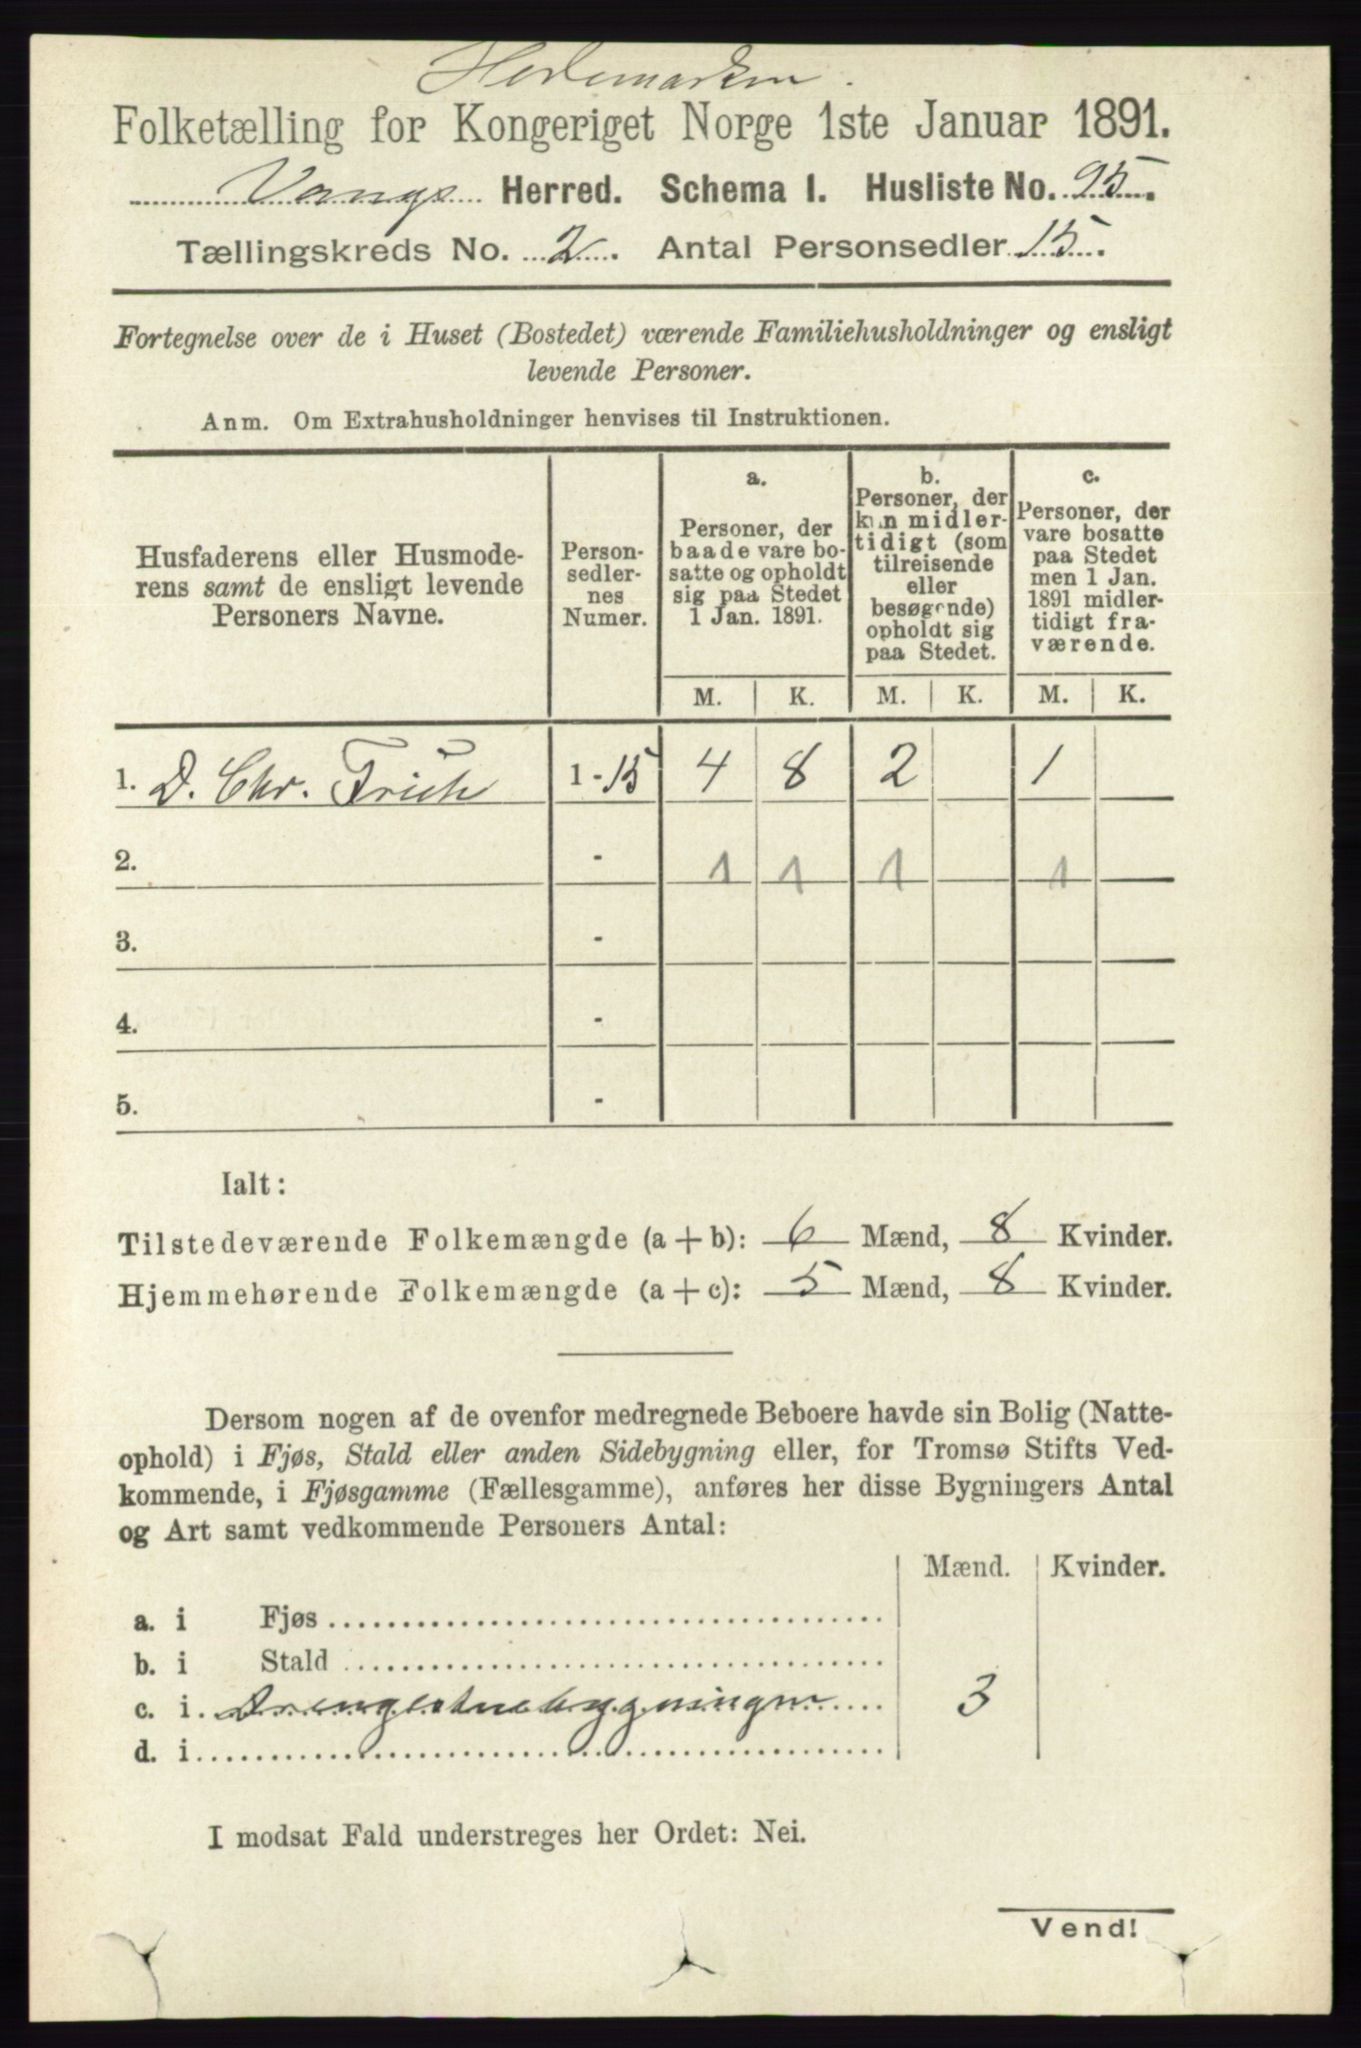 Hedemarken.
Folketælling for Kongeriget Norge 1ste Januar 1891.
Vangs Herred. Schema I. Husliste No. 95.
Tællingskreds No. 2. Antal Personsedler 15.
Fortegnelse over de i Huset (Bostedet) værende Familiehusholdninger og ensligt
levende Personer.
Anm. Om Extrahusholdninger henvises til Instruktionen.
Husfaderens eller Husmode-
rens samt de ensligt levende
Personers Navne.
Person-
sedler-
nes
Numer.
a.
Personer, der
baade vare bo-
satte og opholdt
sig paa Stedet
1 Jan. 1891.
b.
Personer, der
kun midler-
tidigt (som
tilreisende
eller
besøgende)
opholdt sig
paa Stedet.
c.
Personer, der
vare bosatte
paa Stedet
men 1 Jan.
1891 midler-
tidigt fra-
værende.
M. K. M. K. M. K.
1. D. Chr. Frich 1 - 15 4 8 2 1
2. - 1 1 1 1
3. -
4. -
5. -
Ialt:
Tilstedeværende Folkemængde (a + b): 6 Mænd, 8 Kvinder.
Hjemmehørende Folkemængde (a + c): 5 Mænd, 8 Kvinder.
Dersom nogen af de ovenfor medregnede Beboere havde sin Bolig (Natte-
ophold) i Fjøs, Stald eller anden Sidebygning eller, for Tromsø Stifts Ved-
kommende, i Fjøsgamme (Fællesgamme), anføres her disse Bygningers Antal
og Art samt vedkommende Personers Antal:
Mænd. Kvinder.
a. i Fjøs
b. i Stald
c. i Drengestuebygningen 3
d. i
I modsat Fald understreges her Ordet: Nei.
Vend!